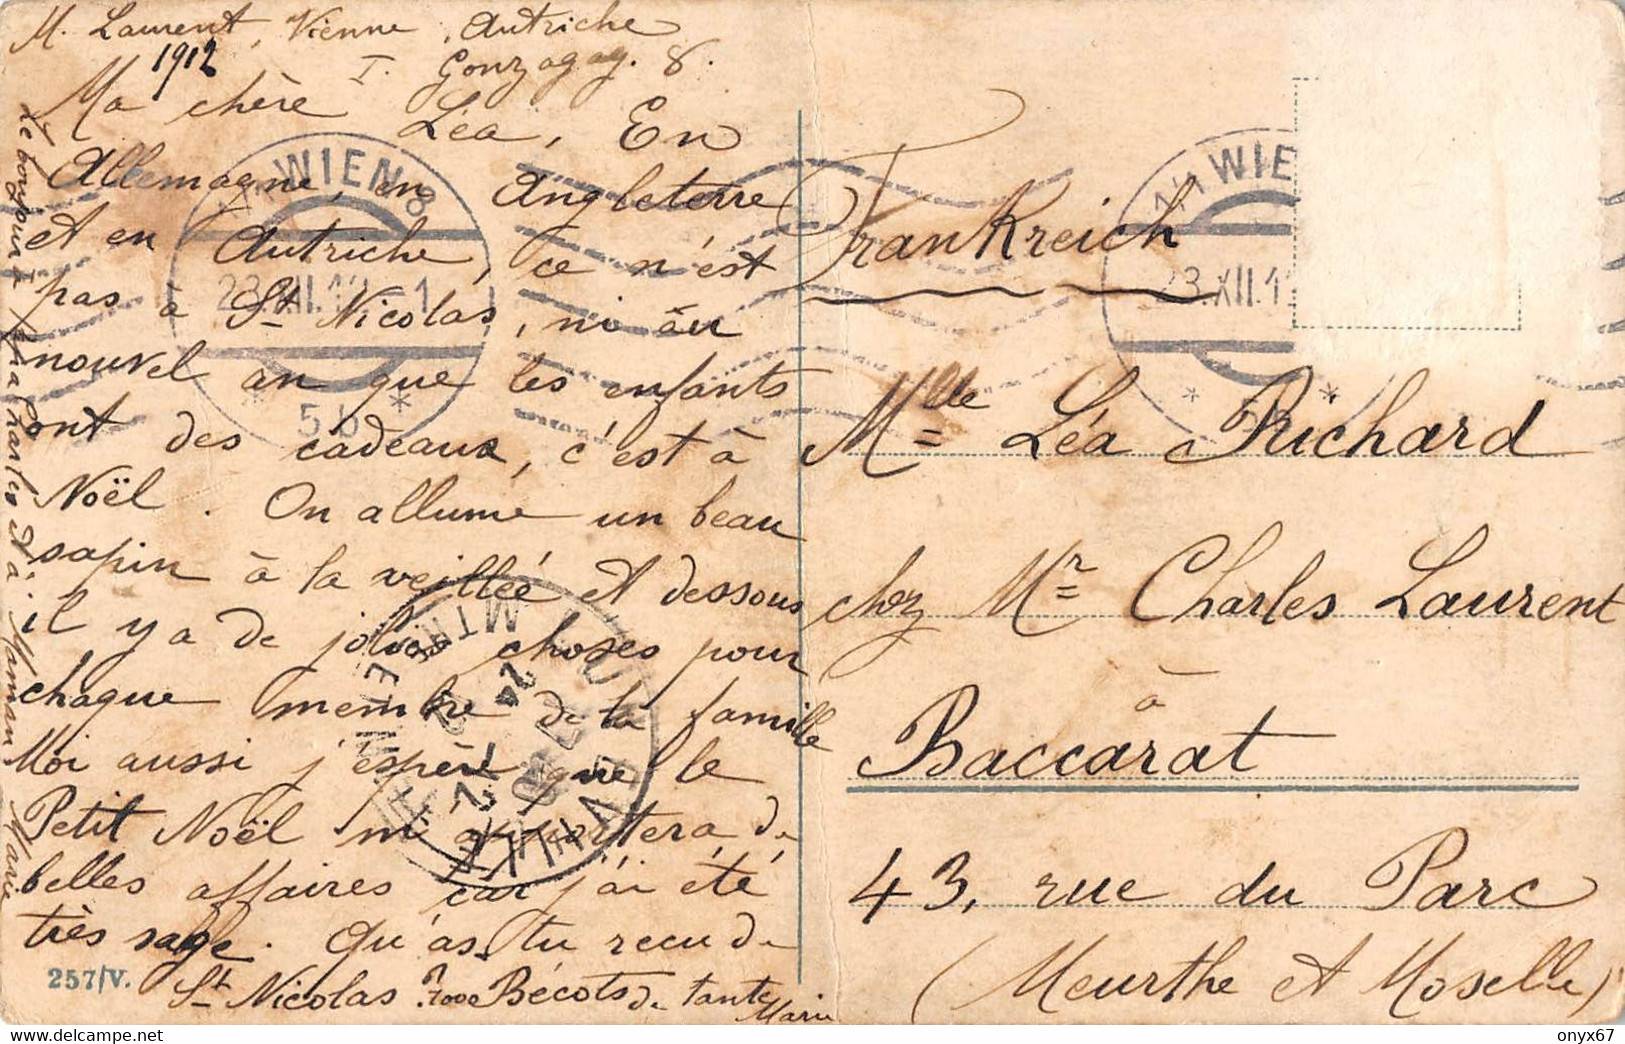 M. Laurent, Vienne, Autriche
1912 I. Gonzagag. 8.
Ma chère Léa, En
Allemagne, en Angleterre
et en Autriche, ce n'est
pas à St Nicolas, ni au
nouvel an que les enfants
ont des cadeaux, c'est à
Noël. On allume un beau
sapin à la veillée et dessous
il y a de jolies choses pour
chaque membre de la famille
Moi aussi j'espère que le
Petit Noël m'apportera de
belles affaires car j'ai été
très sage. Qu'as-tu reçu de
St Nicolas ? 1000 Bécots de tante
Marie
Le bonjour à Charles et à Maman Marie
257/V.
WIEN 8
23.XII.12-1
* 5b *
WIE
23.XII.1
Frankreich
Mlle Léa Richard
chez Mr Charles Laurent
à
Baccarat
43, rue du Parc
(Meurthe et Moselle)
onyx67